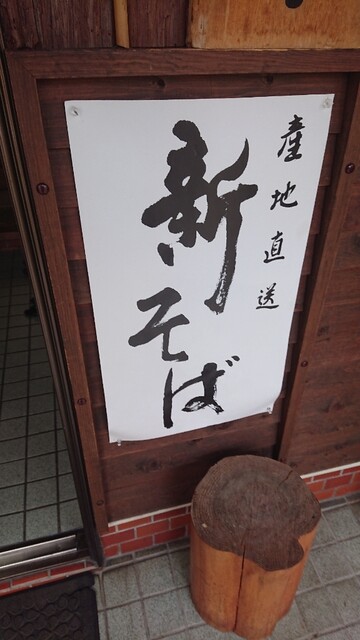 産地直送
新そば